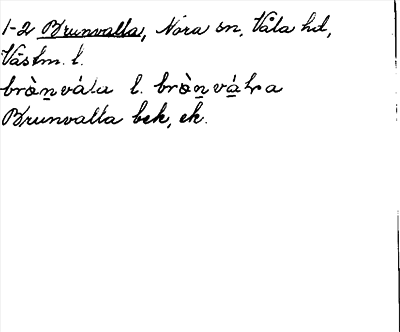 1-2 Brunvalla, Nora sn, Våla hd,
Västm. l.
bròn̲vála l. bròn̲vá̲ɫa
Brunvalla bek, ek.